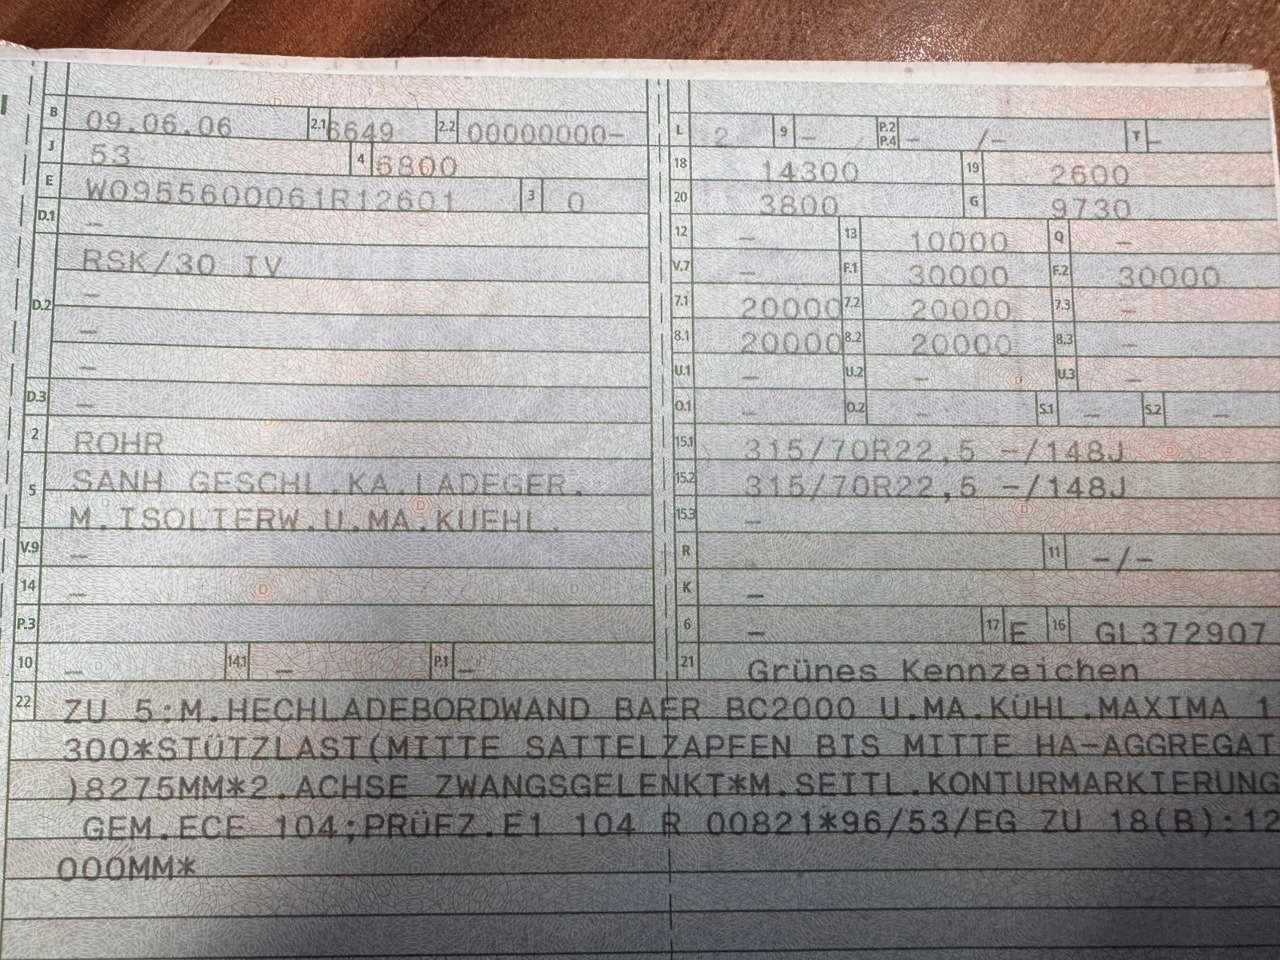 B 09.06.06 2.1 6649 2.2 00000000-
J 53 4 6800
E W0955600061R12601 3 0
D.1 -
D.2 RSK/30 IV
-
-
-
D.3 -
2 ROHR
5 SANH GESCHL.KA.LADEGER.
M.ISOLTERW.U.MA.KUEHL.
V.9 -
14 -
P.3
10 - 14.1 - P.1 -
L 2 9 - P.2 P.4 - /- T -
18 14300 19 2600
20 3800 G 9730
12 - 13 10000 Q -
V.7 - F.1 30000 F.2 30000
7.1 20000 7.2 20000 7.3 -
8.1 20000 8.2 20000 8.3 -
U.1 - U.2 - U.3 -
O.1 - O.2 - S.1 - S.2 -
15.1 315/70R22,5 -/148J
15.2 315/70R22,5 -/148J
15.3 -
R 11 -/-
K -
6 - 17 E 16 GL372907
21 Grünes Kennzeichen
22 ZU 5:M.HECHLADEBORDWAND BAER BC2000 U.MA.KÜHL.MAXIMA 1
300*STÜTZLAST(MITTE SATTELZAPFEN BIS MITTE HA-AGGREGAT
)8275MM*2.ACHSE ZWANGSGELENKT*M.SEITL.KONTURMARKIERUNG
GEM.ECE 104;PRÜFZ.E1 104 R 00821*96/53/EG ZU 18(B):12
000MM*